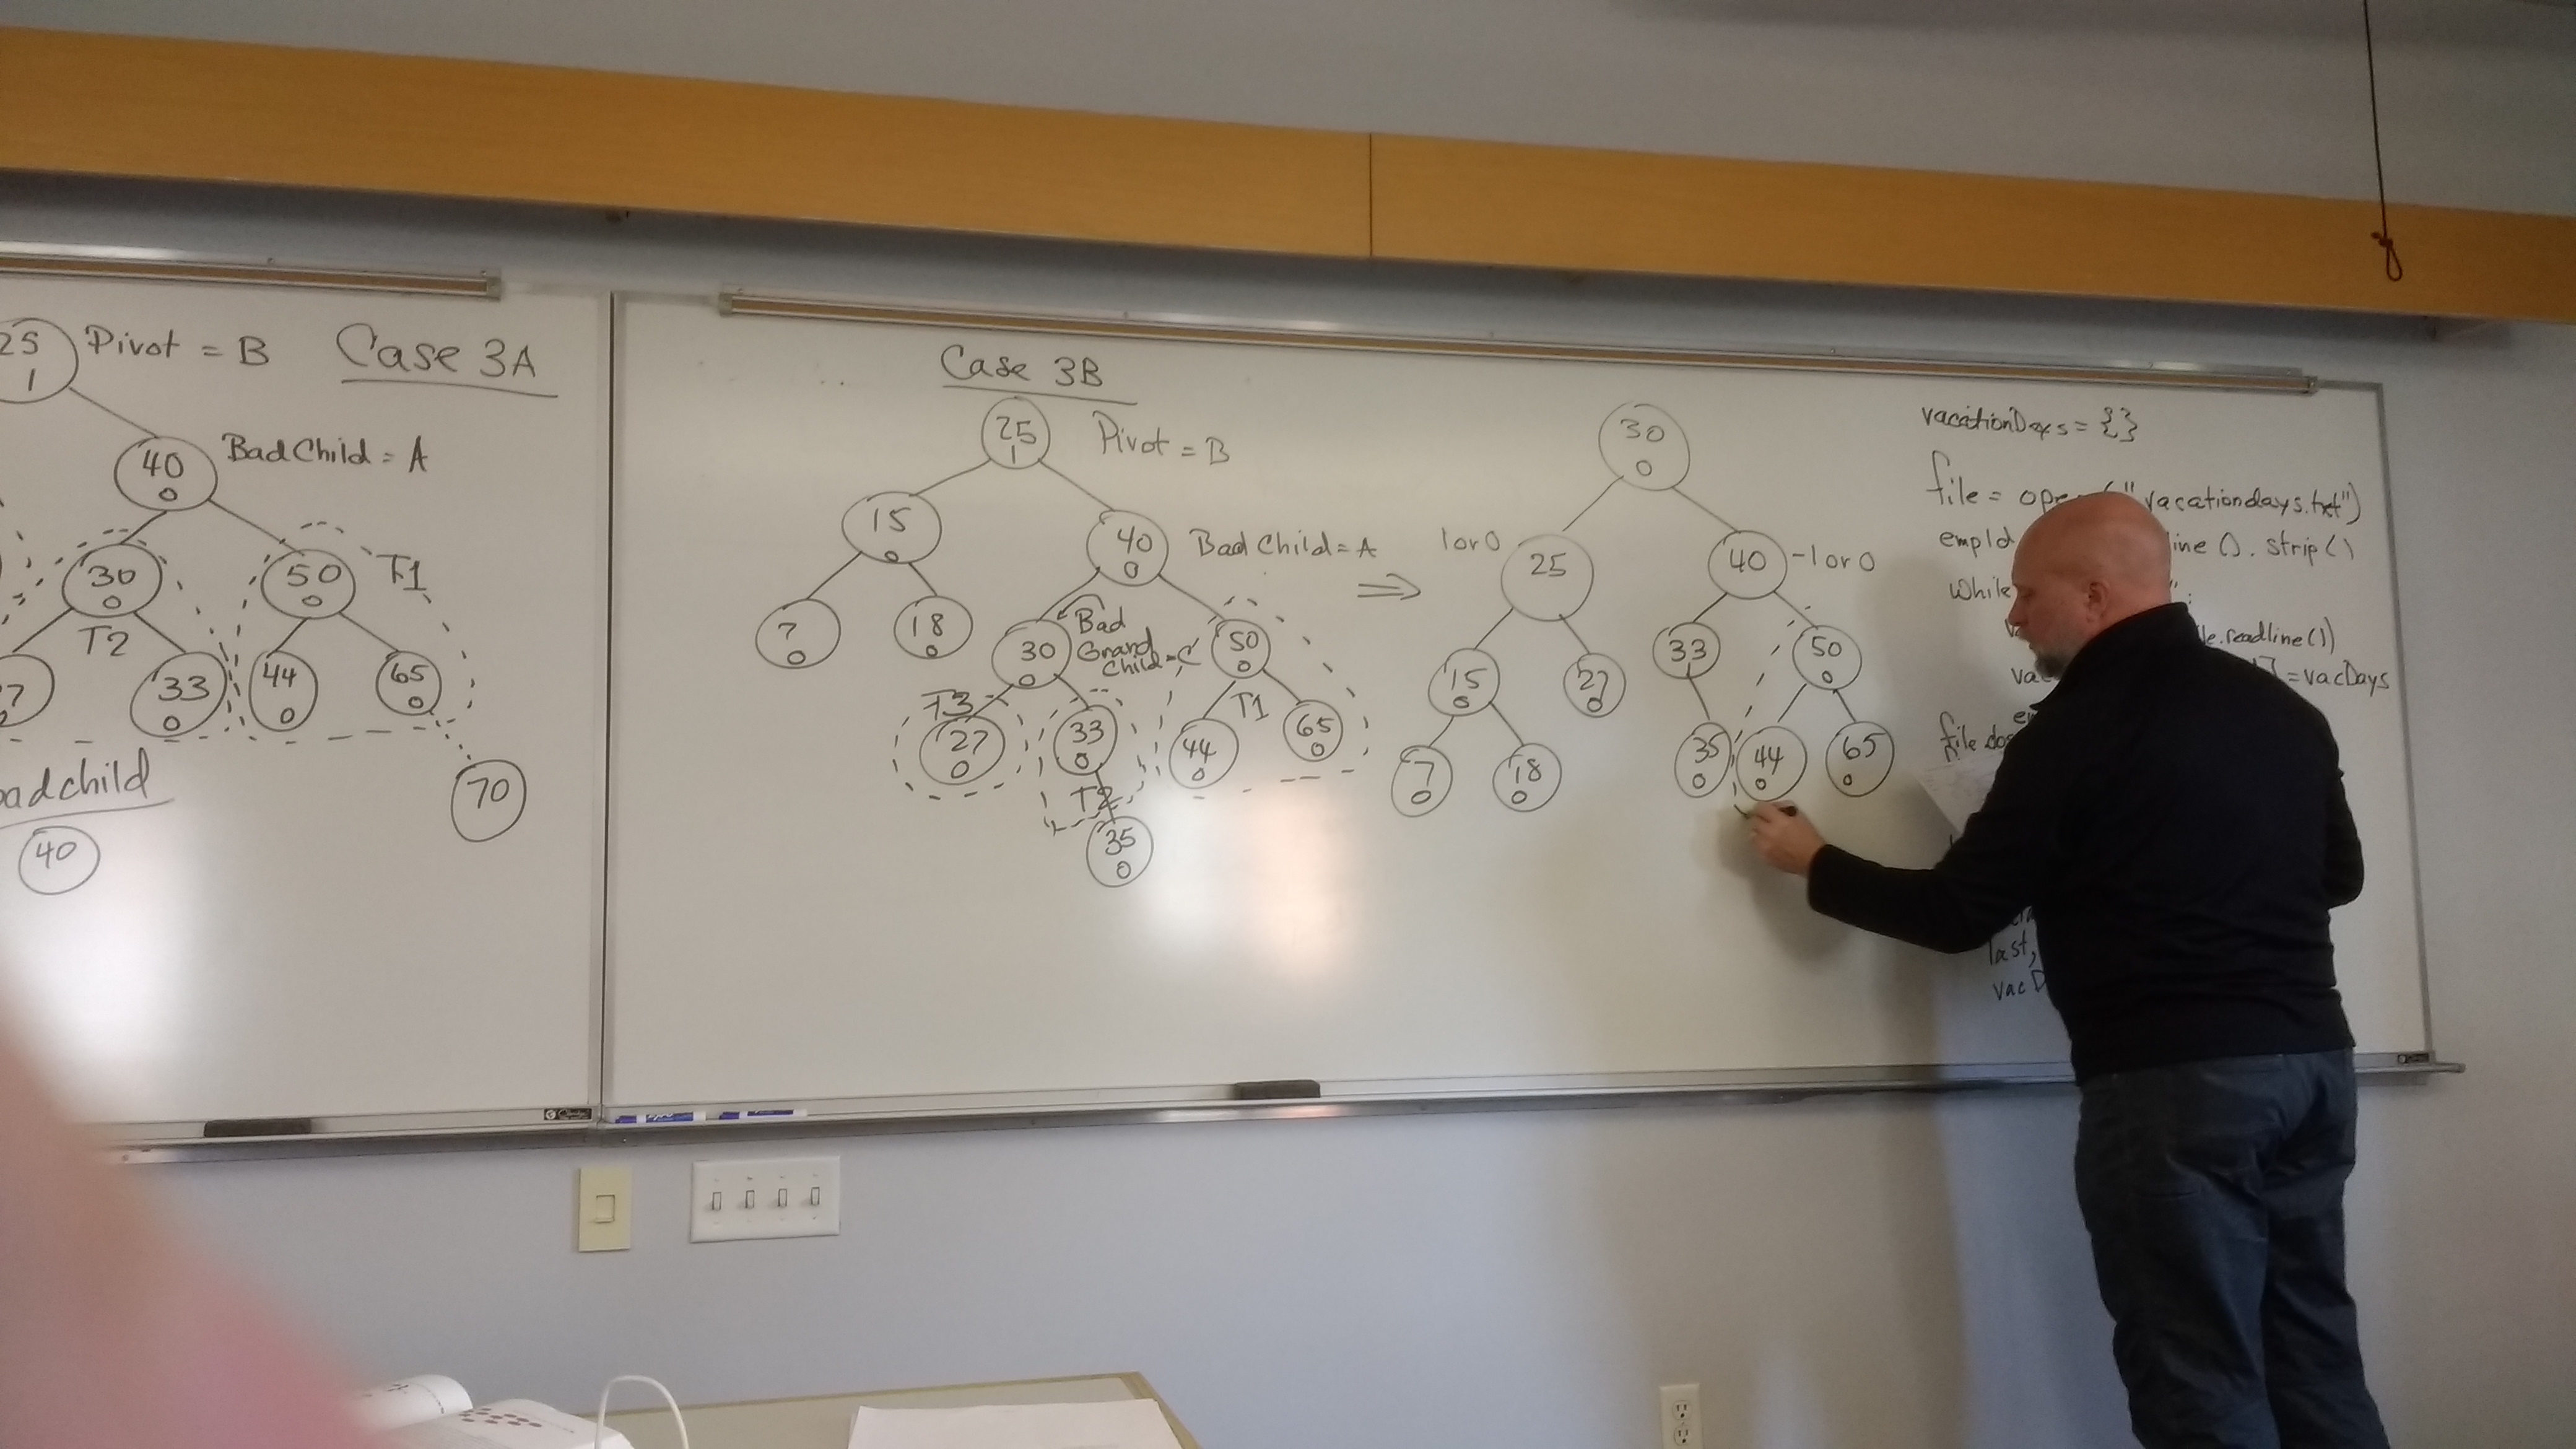 25
1
Pivot = B
Case 3A
40
0
BadChild = A
30
0
50
0
T1
T2
33
0
44
0
65
0
70
badchild
40
Case 3B
25
1
Pivot = B
15
0
40
0
Bad Child = A
7
0
18
0
30
0
Bad
Grand
Child = C
50
0
T3
27
0
33
0
T1
44
0
65
0
T2
35
0
⇒
30
0
1 or 0
25
40
-1 or 0
15
0
27
0
33
50
0
7
0
18
0
35
0
44
0
65
0
vacationDays = {}
file = open("vacationdays.txt")
empId
line().strip()
while
":
le.readline())
] = vacDays
file
last,
vacD